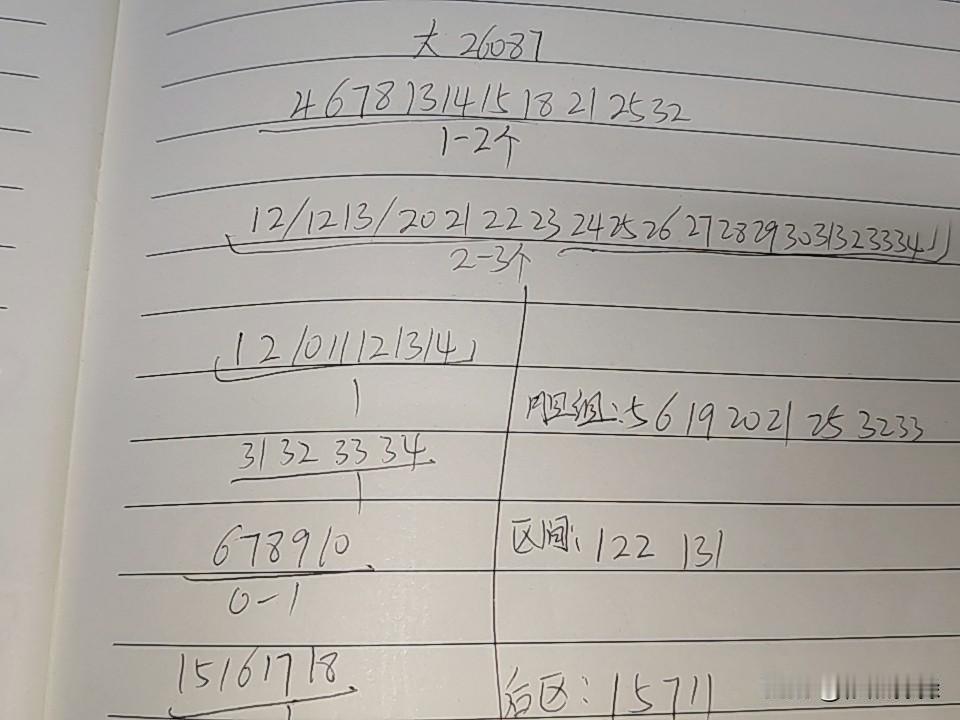 大 26087
4 6 7 8 13 14 15 18 21 25 32
1-2个
12/12 13/20 21 22 23 24 25 26 27 28 29 30 31 32 33 34
2-3个
1 2 10 11 12 13 14
1
31 32 33 34
1
6 7 8 9 10
0-1
15 16 17 18
1
胆组:5 6 19 20 21 25 32 33
区间:122 131
后区:1 5 7 11